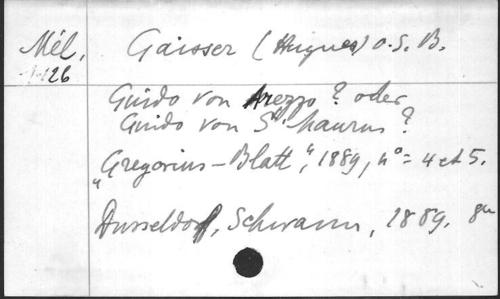 Mél. Gaisser (Hugues) O.S.B.
1-126
Guido von Arezzo? oder
Guido von St. Maurus?
"Gregorius-Blatt", 1889, n° = 4 et 5.
Dusseldorf, Schwann, 1889. 8°